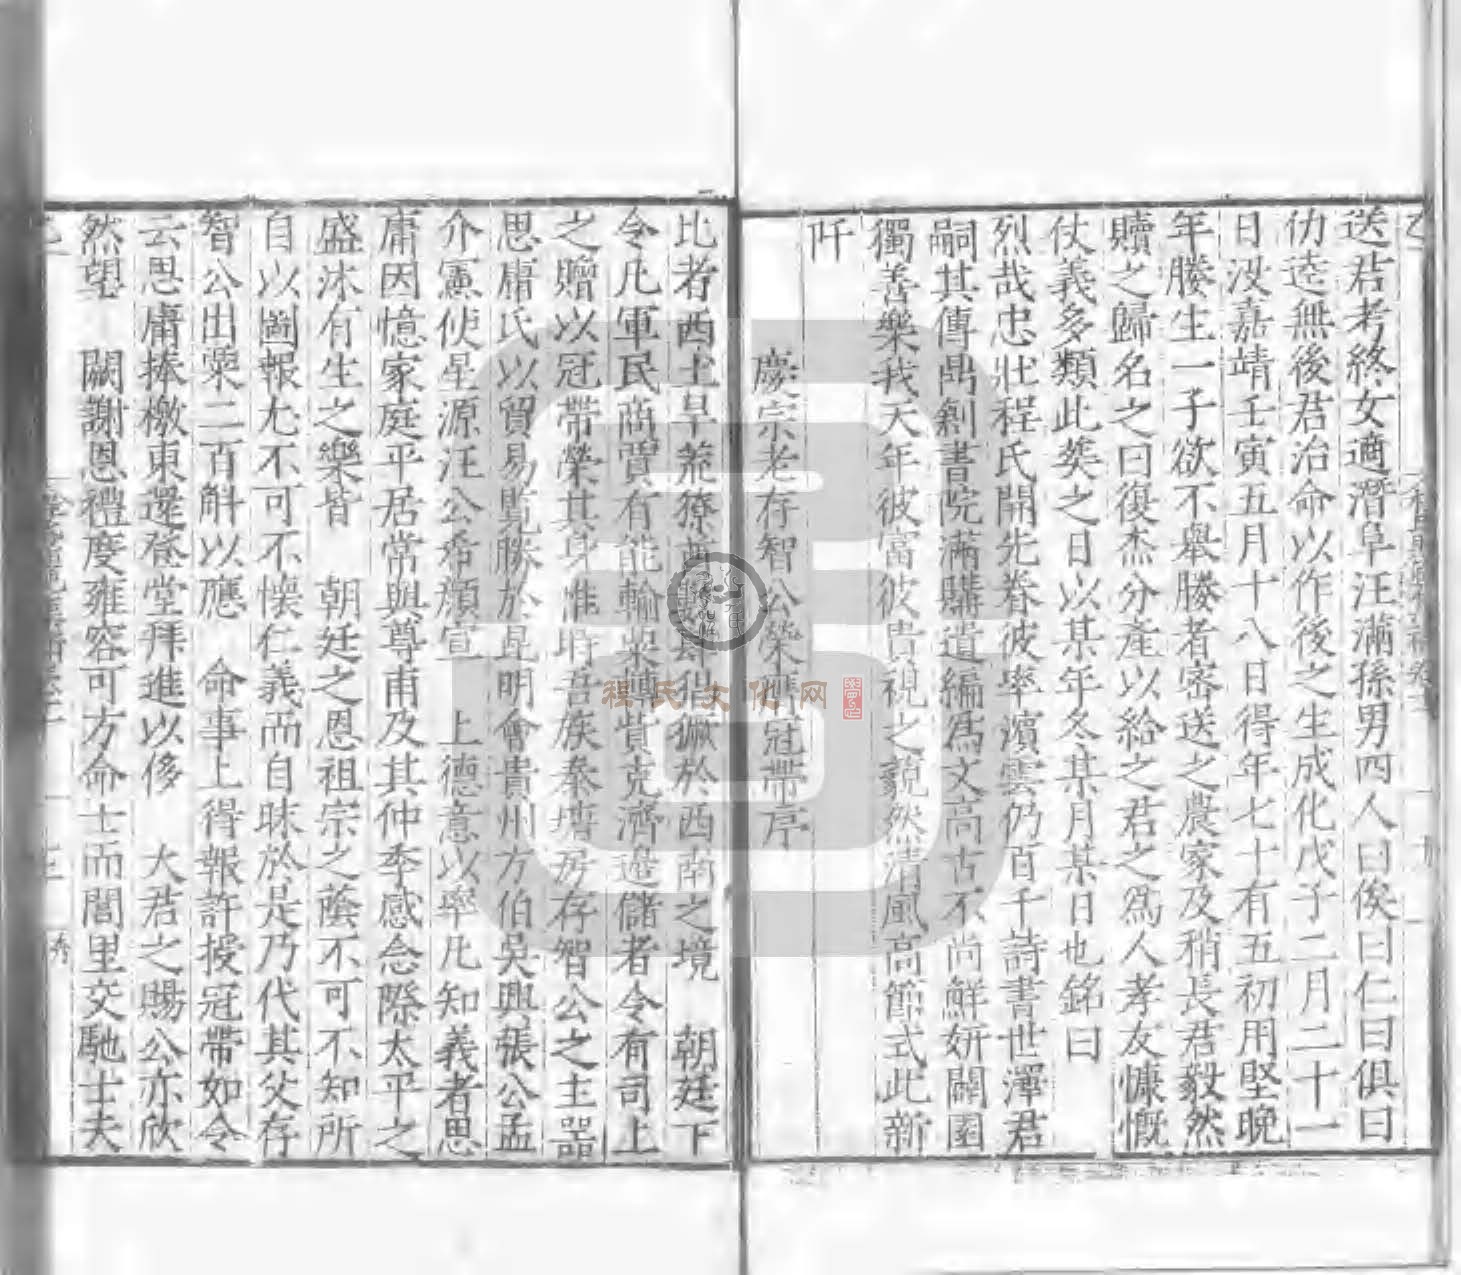 送君考終女適潛阜汪滿孫男四人曰俟曰仁曰俱曰
仂逵無後君治命以作後之生成化戊子二月二十一
日沒嘉靖壬寅五月十八日得年七十有五初用堅晚
年媵生一子欲不舉媵者密送之農家及稍長君毅然
贖之歸名之曰復杰分產以給之君之為人孝友慷慨
仗義多類此葬之日以某年冬某月某日也銘曰
烈哉忠壯程氏開先眷彼率濱雲仍百千詩書世澤君
嗣其傳咼創書院滿購遺編為文高古不尚鮮妍闢園
獨善樂我天年彼富彼貴視之藐然清風高節式此新
阡
慶宗老存智公榮膺冠帶序
比者西土旱荒獠肆猖獗於西南之境 朝廷下
令凡軍民商賈有能輸粟轉貲克濟邊儲者令有司上
之贈以冠帶榮其身維時吾族泰塘房存智公之主器
思庸氏以貿易覧勝於昆明會貴州方伯吳興張公孟
介憲使星源汪公希顏宣 上德意以率凡知義者思
庸因憶家庭平居常與尊甫及其仲季感念際太平之
盛沐有生之樂皆 朝廷之恩祖宗之蔭不可不知所
自以圖報尤不可不懷仁義而自昧於是乃代其父存
智公出粟二百斛以應 命事上得報許授冠帶如令
云思庸捧檄東還登堂拜進以侈 大君之賜公亦欣
然望 闕謝恩禮度雍容可方命士而閭里交馳士夫
程氏文化网